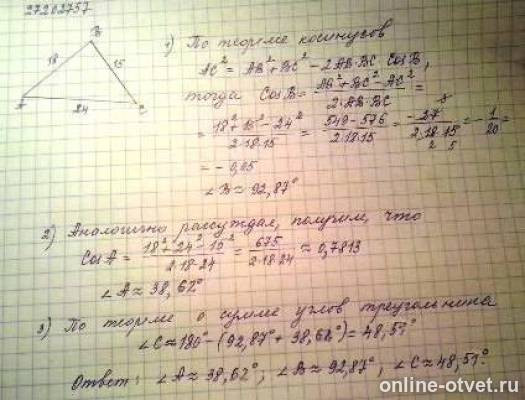 27202757
B
18
15
A
24
C
1) По теореме косинусов
AC² = AB² + BC² - 2AB·BC·CosB,
тогда CosB = (AB² + BC² - AC²)/(2·AB·BC) =
= (18² + 15² - 24²)/(2·18·15) = (549 - 576)/(2·18·15) = -27/(2·18·15) = -1/20 =
= -0,05
∠B ≈ 92,87°
2) Аналогично рассуждая, получим, что
CosA = (18² + 24² - 15²)/(2·18·24) = 675/(2·18·24) ≈ 0,7813
∠A ≈ 38,62°
3) По теореме о сумме углов треугольника
∠C ≈ 180° - (92,87° + 38,62°) = 48,51°
Ответ: ∠A ≈ 38,62°; ∠B ≈ 92,87°; ∠C ≈ 48,51°.
online-otvet.ru